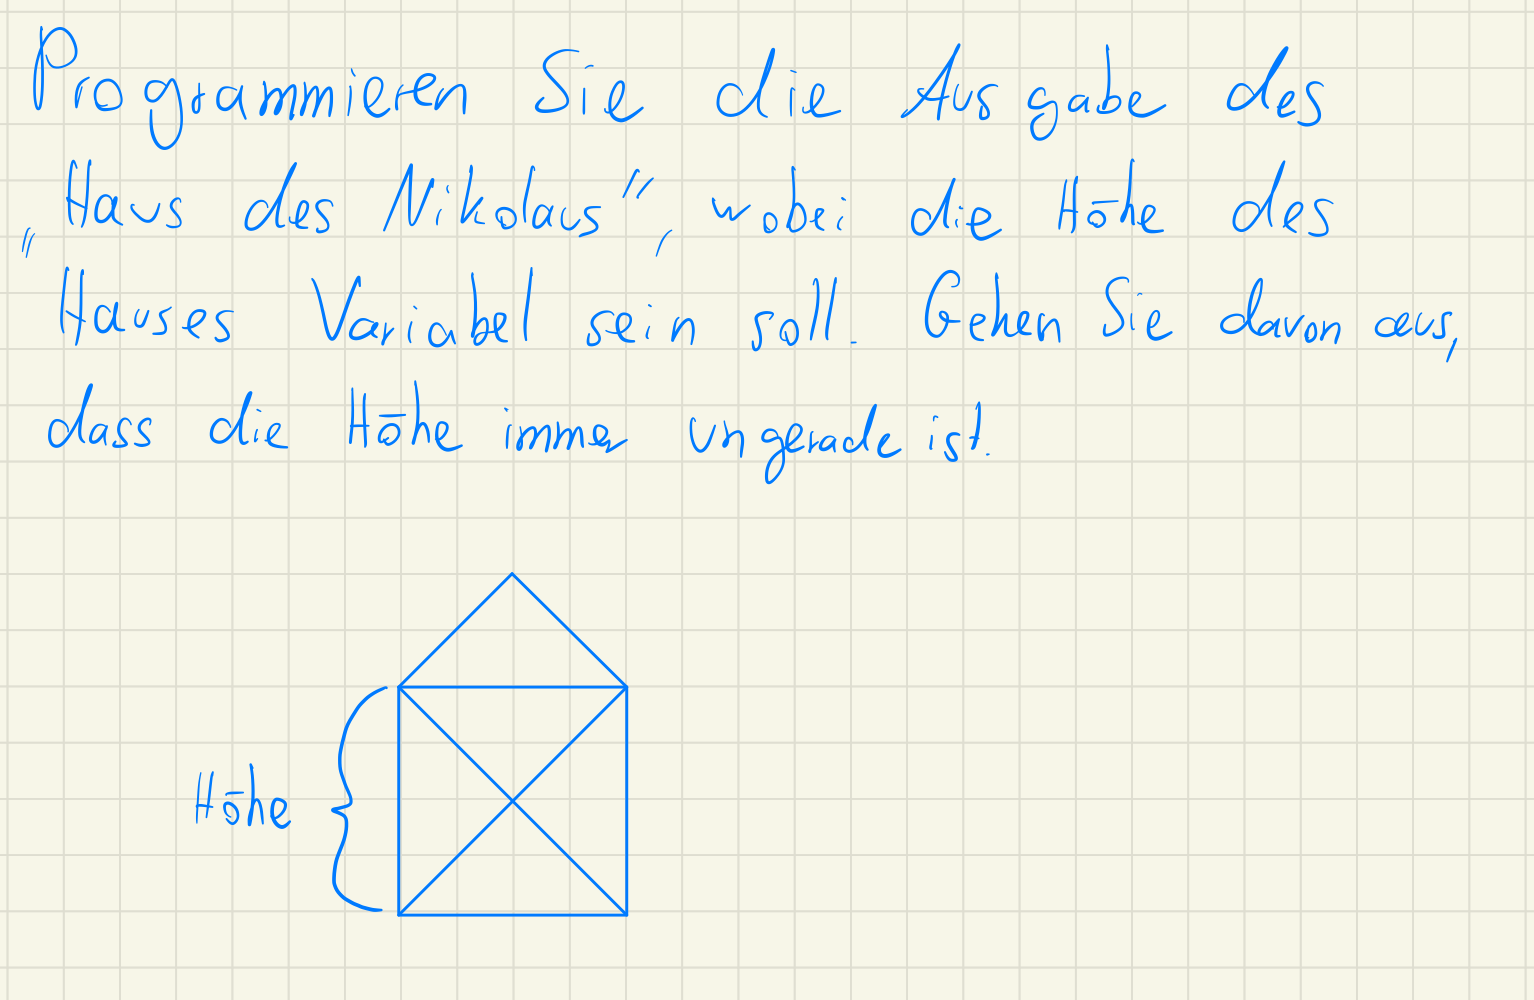 Programmieren Sie die Ausgabe des
„Haus des Nikolaus“, wobei die Höhe des
Hauses Variabel sein soll. Gehen Sie davon aus,
dass die Höhe immer ungerade ist.
Höhe